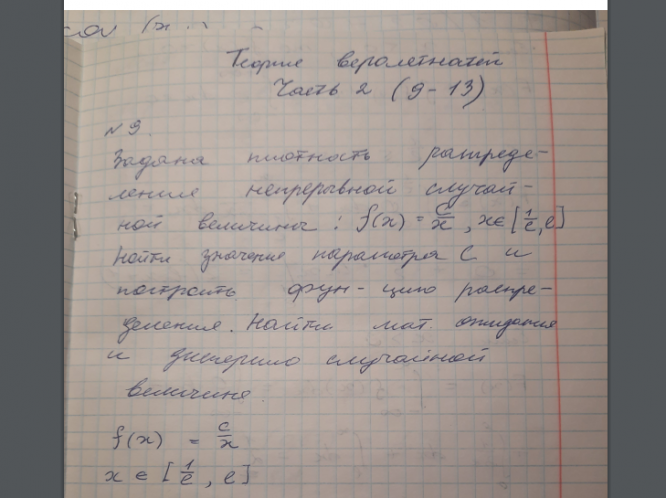 Теория вероятностей
Часть 2 (9-13)
№ 9.
Задана плотность распреде-
ления непрерывной случай-
ной величины: f(x) = c/x, x∈[1/e, e]
Найти значение параметра C и
построить фун-цию распре-
деления. Найти мат. ожидание
и дисперсию случайной
величины.
f(x) = c/x
x ∈ [1/e, e]